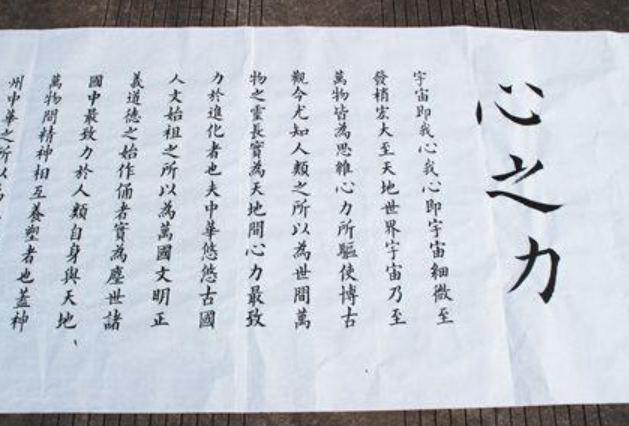 心之力
宇宙即我心我心即宇宙細微至
發梢宏大至天地世界宇宙乃至
萬物皆為思維心力所驅使博古
觀今尤知人類之所以為世間萬
物之靈長實為天地間心力最致
力於進化者也夫中華悠悠古國
人文始祖之所以為萬國文明正
義道德之始作俑者實為塵世諸
國中最致力於人類自身與天地、
萬物間精神相互養塑者也蓋神
州中華之所以為